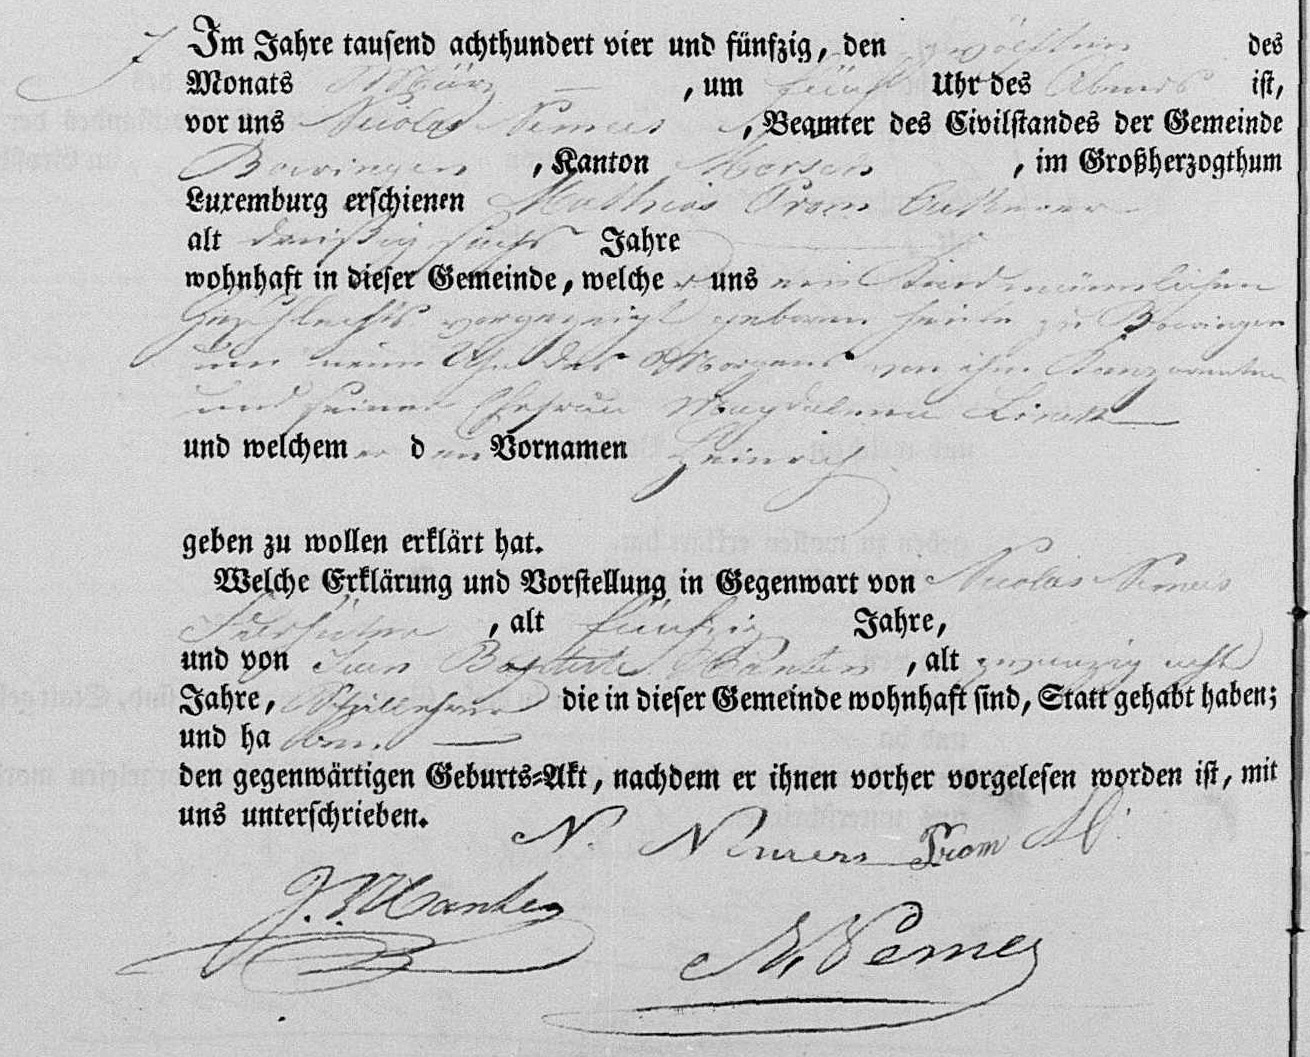 7 Im Jahre tausend achthundert vier und fünfzig, den zwölften des
Monats März, um fünf Uhr des Abends ist,
vor uns Nicolas Nemers, Beamter des Civilstandes der Gemeinde
Boevingen, Kanton Mersch, im Großherzogthum
Luxemburg erschienen Mathias Prom Ackerer
alt dreißig sechs Jahre
wohnhaft in dieser Gemeinde, welcher uns ein Kind männlichen
Geschlechts vorgezeigt geboren heute zu Boevingen
um neun Uhr des Morgens von ihm
und seiner Ehefrau Magdalena
und welchem er den Vornamen Heinrich
geben zu wollen erklärt hat.
Welche Erklärung und Vorstellung in Gegenwart von Nicolas Nemers
, alt fünfzig Jahre,
und von Jean Baptiste, alt zwanzig acht
Jahre, Schullehrer die in dieser Gemeinde wohnhaft sind, Statt gehabt haben;
und haben
den gegenwärtigen Geburts=Akt, nachdem er ihnen vorher vorgelesen worden ist, mit
uns unterschrieben.
N. Nemers Prom M.
N. Nemers